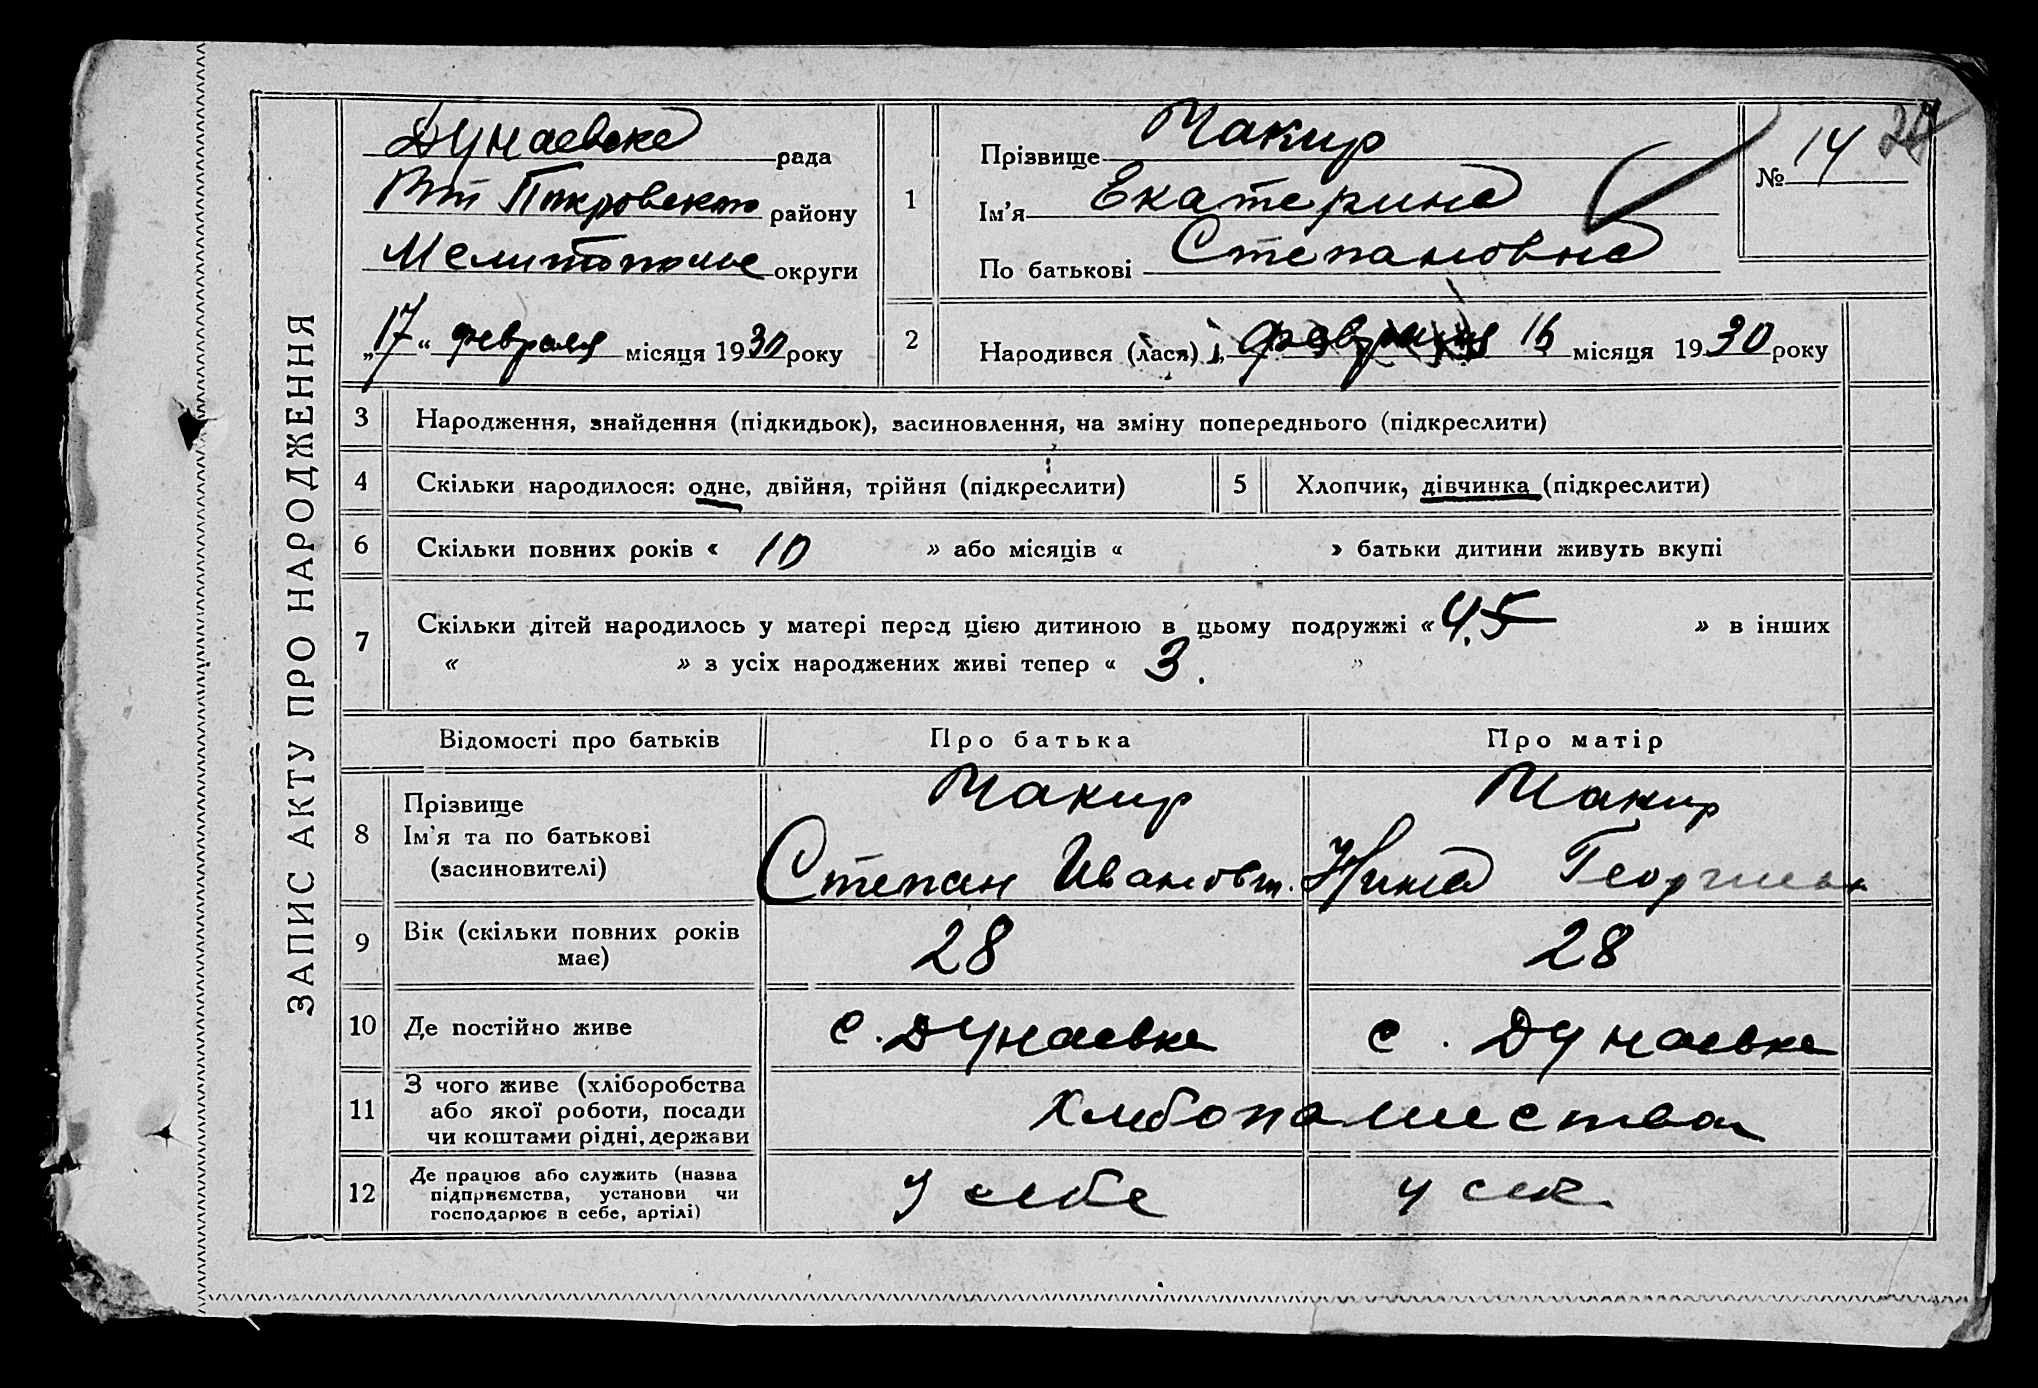 ЗАПИС АКТУ ПРО НАРОДЖЕННЯ
Дунаевска рада
Покровского району
округи
„17“ февраля місяця 1930 року
1
Прізвище Чакир
Ім'я Екатерина
По батькові Степановна
№ 14
2
Народився (лася) „ февраля 16 місяця 1930 року
3 Народження, знайдення (підкидьок), засиновлення, на зміну попереднього (підкреслити)
4 Скільки народилося: одне, двійня, трійня (підкреслити)
5 Хлопчик, дівчинка (підкреслити)
6 Скільки повних років « 10 » або місяців « » батьки дитини живуть вкупі
7 Скільки дітей народилось у матері перед цією дитиною в цьому подружжі « 4,5 » в інших
« » з усіх народжених живі тепер « 3. »
Відомості про батьків Про батька Про матір
8 Прізвище
Ім'я та по батькові
(засиновителі)
Чакир
Степан Иванович.
Чакир
Нина
9 Вік (скільки повних років
має)
28 28
10 Де постійно живе с. Дунаевка с. Дунаевка
11 З чого живе (хліборобства
або якої роботи, посади
чи коштами рідні, держави
Хлебопашества
12 Де працює або служить (назва
підприємства, установи чи
господарює в себе, артілі)
у себе у себе